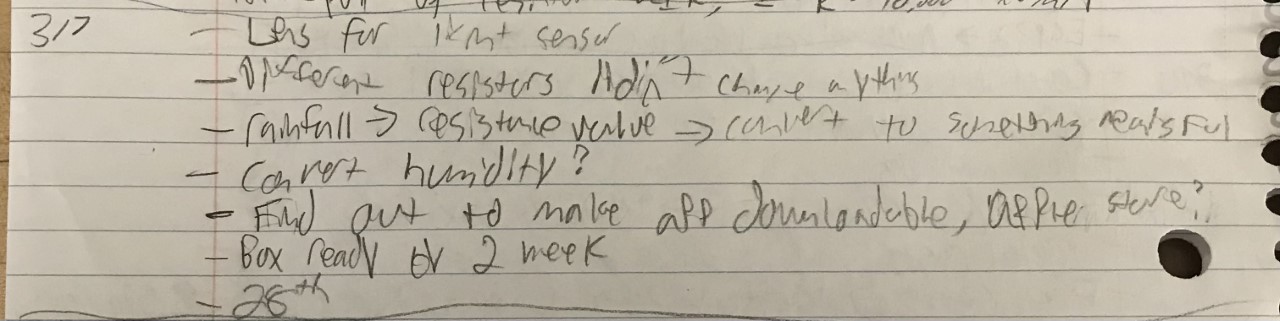 3/7 - Lens for light sensor
- Different resisters didn't change anything
- rainfall → resistance value → convert to something meaningful
- Convert humidity?
- Find out to make app downloadable, apple store?
- Box ready by 2 week
- 28th